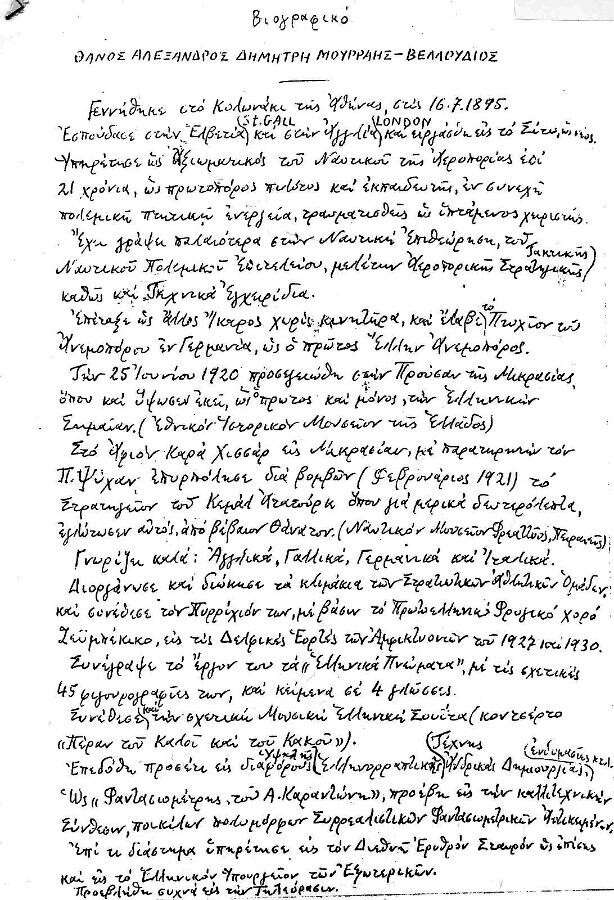 Βιογραφικό
ΘΑΝΟΣ ΑΛΕΞΑΝΔΡΟΣ ΔΗΜΗΤΡΗ ΜΟΥΡΡΑΗΣ-ΒΕΛΛΟΥΔΙΟΣ
Γεννήθηκε στό Κολωνάκι τῆς Ἀθήνας, στίς 16.7.1895.
St.GALL LONDON
Ἐσπούδασε στήν Ἐλβετία καί στήν Ἀγγλία καί εἰργάσθη εἰς τό Σίτυ, ὡς νέος.
Ὑπηρέτησε ὡς Ἀξιωματικός τοῦ Ναυτικοῦ τῆς Ἀεροπορίας ἐπί
21 χρόνια, ὡς πρωτοπόρος πιλότος καί ἐκπαιδευτής, ἐν συνεχῆ
πολεμική πτητική ἐνεργεία, τραυματισθείς ὡς ἱπτάμενος χειριστής.
Ἔχει γράψει παλαιότερα στήν Ναυτική Ἐπιθεώρηση, τοῦ
Τακτικῆς
Ναυτικοῦ Πολεμικοῦ Ἐπιτελείου, μελέτην Ἀεροπορικῆς Στρατηγικῆς
καθώς καί Τεχνικά Ἐγχειρίδια.
Ἐπέταξε ὡς ἄλλος Ἴκαρος χωρίς κινητῆρα, καί ἔλαβε τό Πτυχίον τοῦ
Ἀνεμοπόρου ἐν Γερμανία, ὡς ὁ πρῶτος Ἕλλην Ἀνεμοπόρος.
Τήν 25 Ἰουνίου 1920 προσγειώθη στήν Προῦσαν τῆς Μικρασίας,
ὅπου καί ὕψωσεν ἐκεῖ, ὡς πρῶτος καί μόνος, τήν Ἑλληνικήν
Σημαίαν. (Ἐθνικόν Ἱστορικόν Μουσεῖον τῆς Ἑλλάδος)
Στό Ἀφιόν Καρά Χισσάρ εἰς Μικρασίαν, μέ παρατηρητήν τόν
Π. Ψύχαν ἐπυρπόλησε διά βομβῶν (Φεβρουάριος 1921) τό
Στρατηγεῖον τοῦ Κεμάλ Ἀτατούρκ ὅπου γιά μερικά δευτερόλεπτα,
ἐγλύτωσεν αὐτός, ἀπό βέβαιον θάνατον. (Ναυτικόν Μουσεῖον Φρεαττύος, Πειραιεύς)
Γνωρίζει καλά: Ἀγγλικά, Γαλλικά, Γερμανικά καί Ἰταλικά.
Διοργάνωσε καί διώκησε τά κλιμάκια τῶν Στρατιωτικῶν Ἀθλητικῶν Ὁμάδων,
καί συνέθεσε τόν Πυρρίχιόν των, μέ βάσιν τό Πρωτοελληνικό Φρυγικό χορό
Ζεϋμπέκικο, εἰς τίς Δελφικές Ἑορτές τῶν Ἀμφικτυονιῶν τοῦ 1927 καί 1930.
Συνέγραψε τό ἔργον του τά «Ἑλληνικά Πνεύματα», μέ τίς σχετικές
45 φιγουρογραφίες των, καί κείμενα σέ 4 γλῶσσες.
Συνέθεσε καί τήν σχετική Μουσική Ἑλληνική Σουίτα (κοντσέρτο
«Πέραν τοῦ Καλοῦ καί τοῦ Κακοῦ»).
Ὑψηλῆς Τέχνης ἐνδυμασίες κτλ.
Ἐπεδόθη προσέτι εἰς διαφόρους Ἑλληνορραπτικῆς Ἀνδρικάς Δημιουργίας,
Ὡς «Φαντασιομέτρης, τοῦ Α. Καραντώνη», προέβη εἰς τήν καλλιτεχνικήν
Σύνθεσιν, ποικίλων πολυμόρφων Συρρεαλιστικῶν Φαντασιομετρικῶν Ἀντικειμένων.
Ἐπί τι διάστημα ὑπηρέτησε εἰς τόν Διεθνῆ Ἐρυθρόν Σταυρόν ὡς ἐπίσης
καί εἰς τό Ἑλληνικόν Ὑπουργεῖον τῶν Ἐξωτερικῶν.
Προεβλήθη συχνά εἰς τήν Τηλεόρασιν.